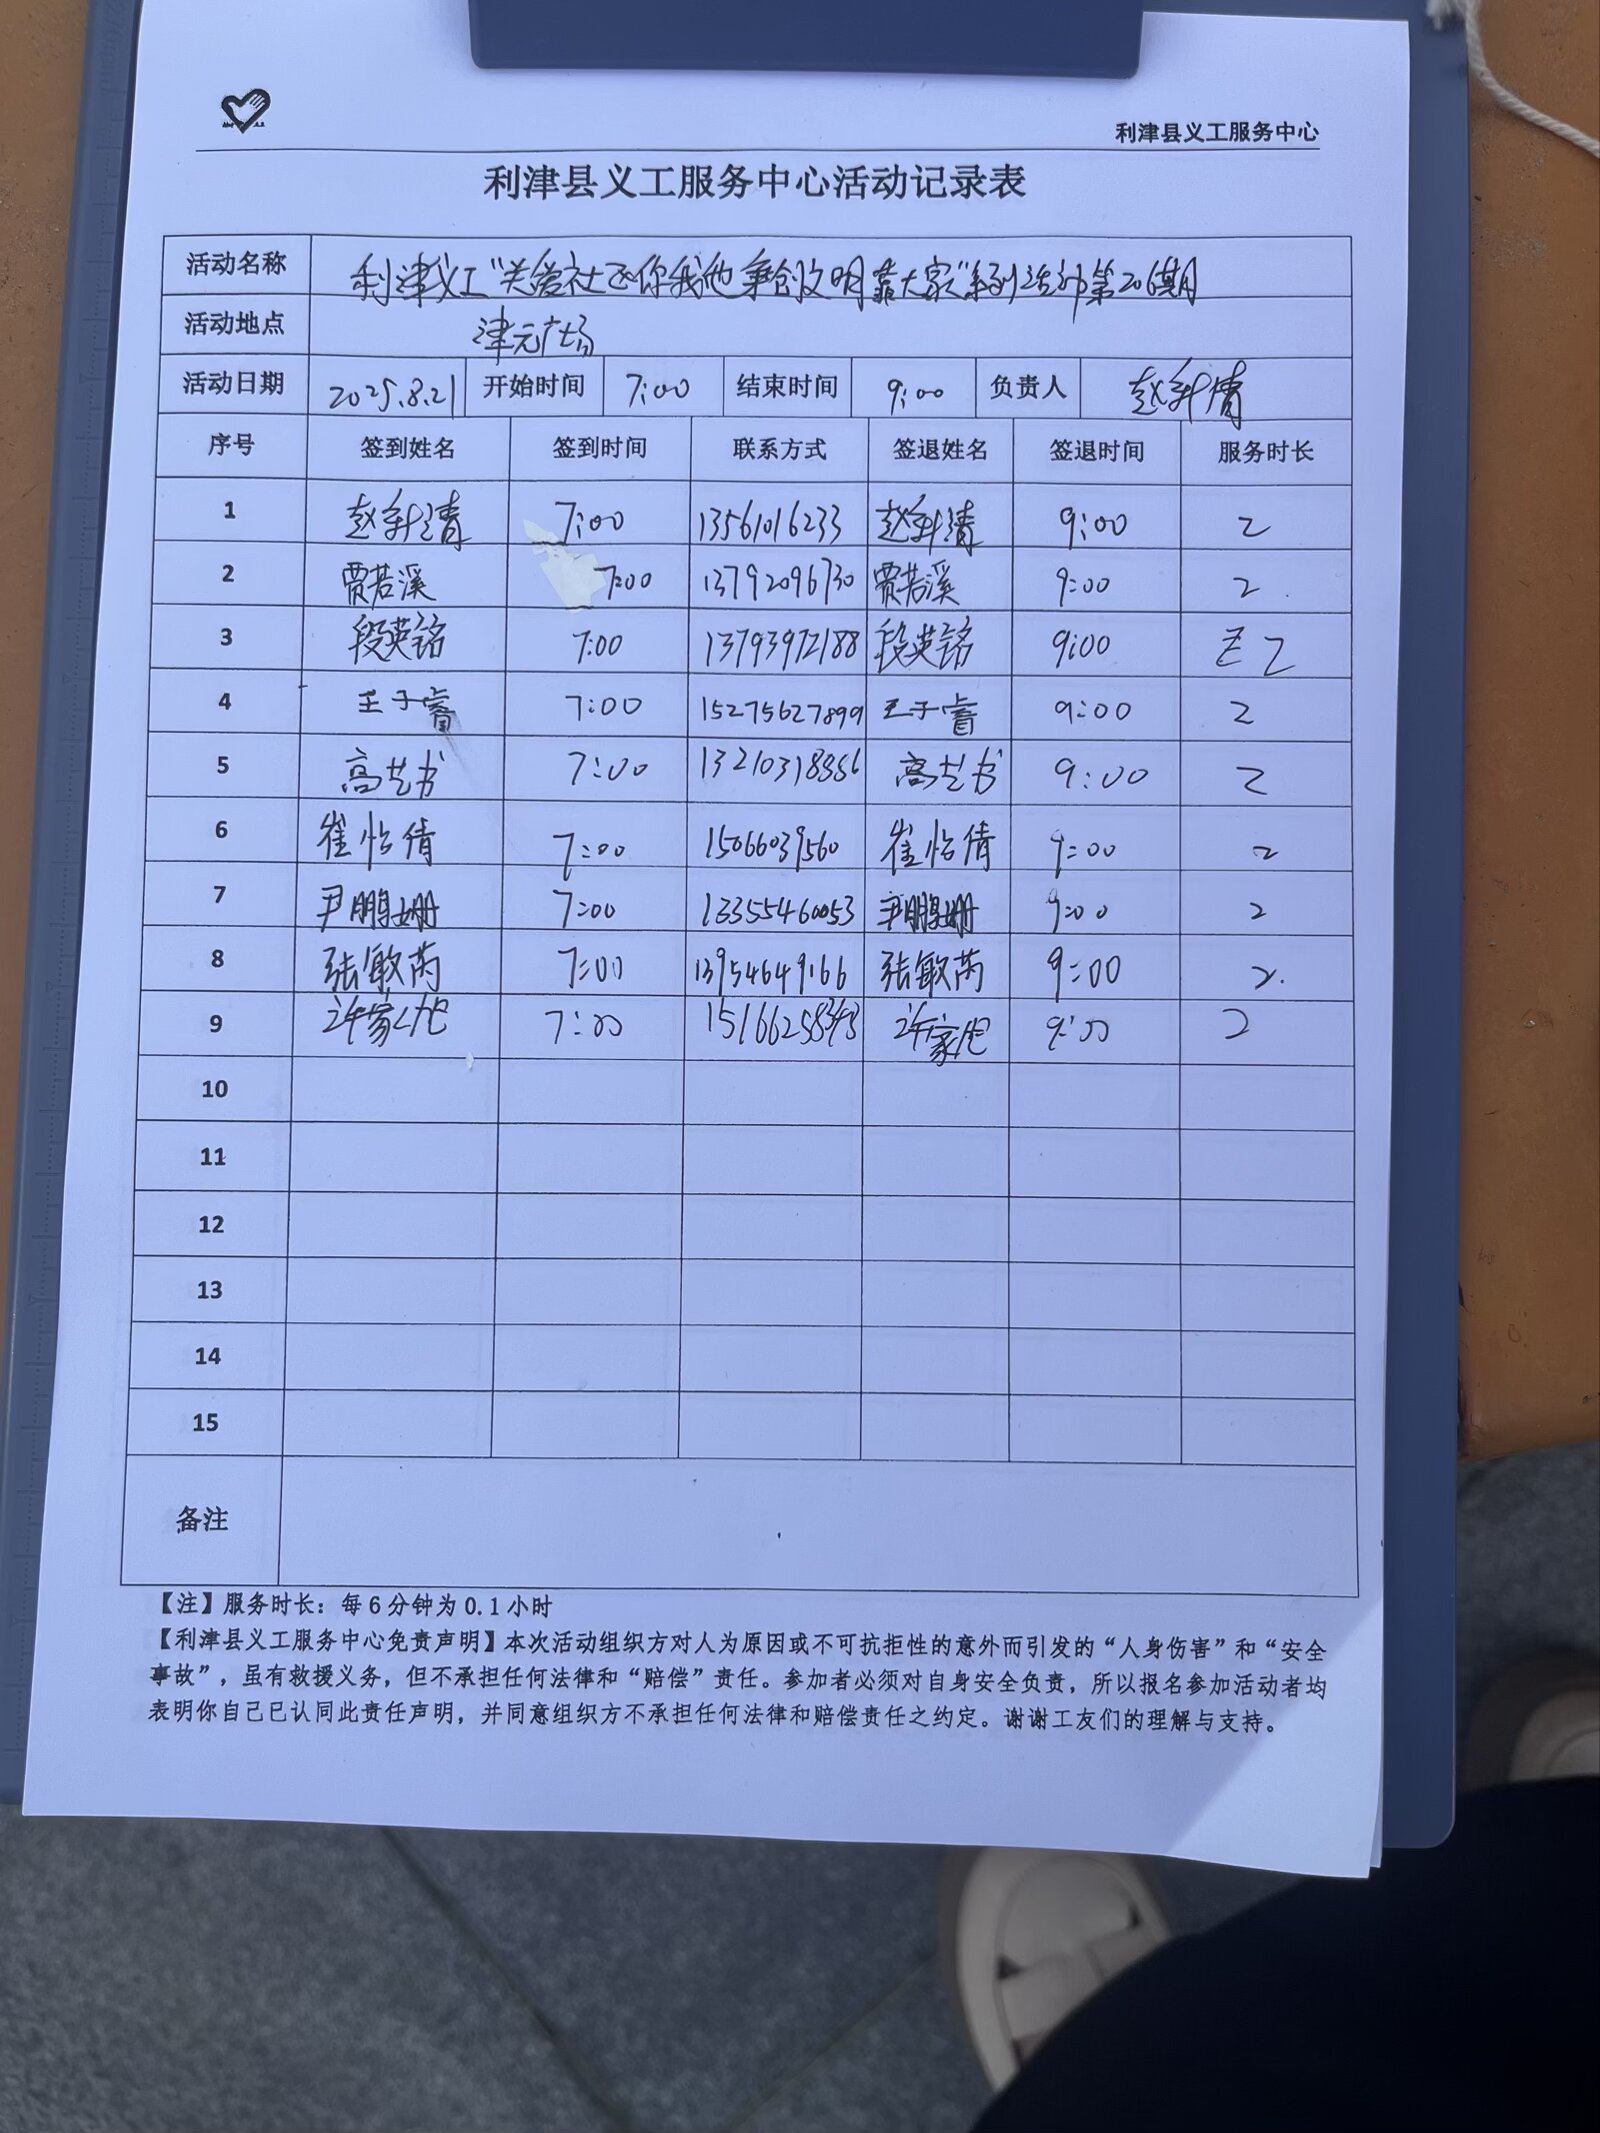 利津县义工服务中心
利津县义工服务中心活动记录表
活动名称 利津义工"关爱社区你我他 争创文明靠大家"系列活动第206期
活动地点 津元广场
活动日期 2025.8.21 开始时间 7:00 结束时间 9:00 负责人 赵新倩
序号 签到姓名 签到时间 联系方式 签退姓名 签退时间 服务时长
1 赵新清 7:00 13561016233 赵新清 9:00 2
2 贾若溪 7:00 13792096730 贾若溪 9:00 2
3 段英铭 7:00 13793972188 段英铭 9:00 2
4 王子睿 7:00 15275627899 王子睿 9:00 2
5 高艺书 7:00 高艺书 9:00 2
6 崔怡倩 7:00 15066039560 崔怡倩 9:00 2
7 尹鹏姗 7:00 13355460053 尹鹏姗 9:00 2
8 张敏芮 7:00 13954649166 张敏芮 9:00 2.
9 7:00 9:00 2
10
11
12
13
14
15
备注
【注】服务时长：每6分钟为0.1小时
【利津县义工服务中心免责声明】本次活动组织方对人为原因或不可抗拒性的意外而引发的“人身伤害”和“安全
事故”，虽有救援义务，但不承担任何法律和“赔偿”责任。参加者必须对自身安全负责，所以报名参加活动者均
表明你自己已认同此责任声明，并同意组织方不承担任何法律和赔偿责任之约定。谢谢工友们的理解与支持。